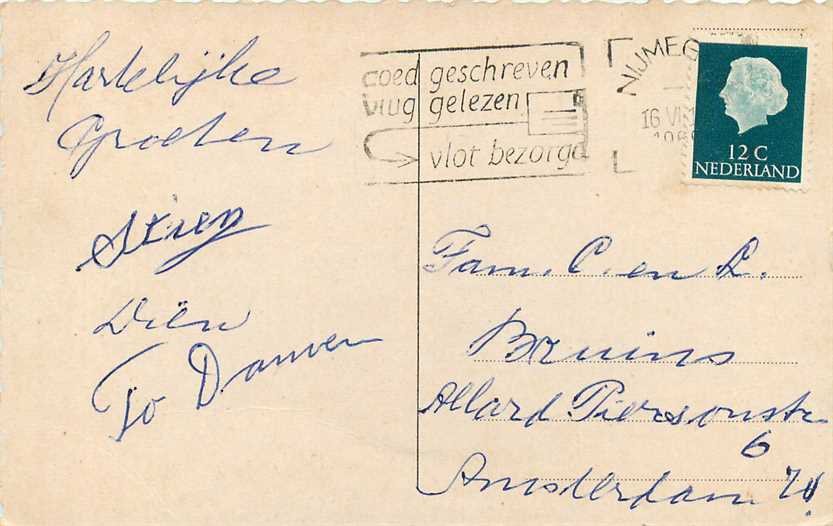 Hartelijke
Groeten
Strep
Diën
Jo Douven
goed geschreven
vlug gelezen
vlot bezorgd
NIJMEG
16 VI
12 C
NEDERLAND
Fam. C. en L.
Bruins
Allard Piersonstr
6
Amsterdam